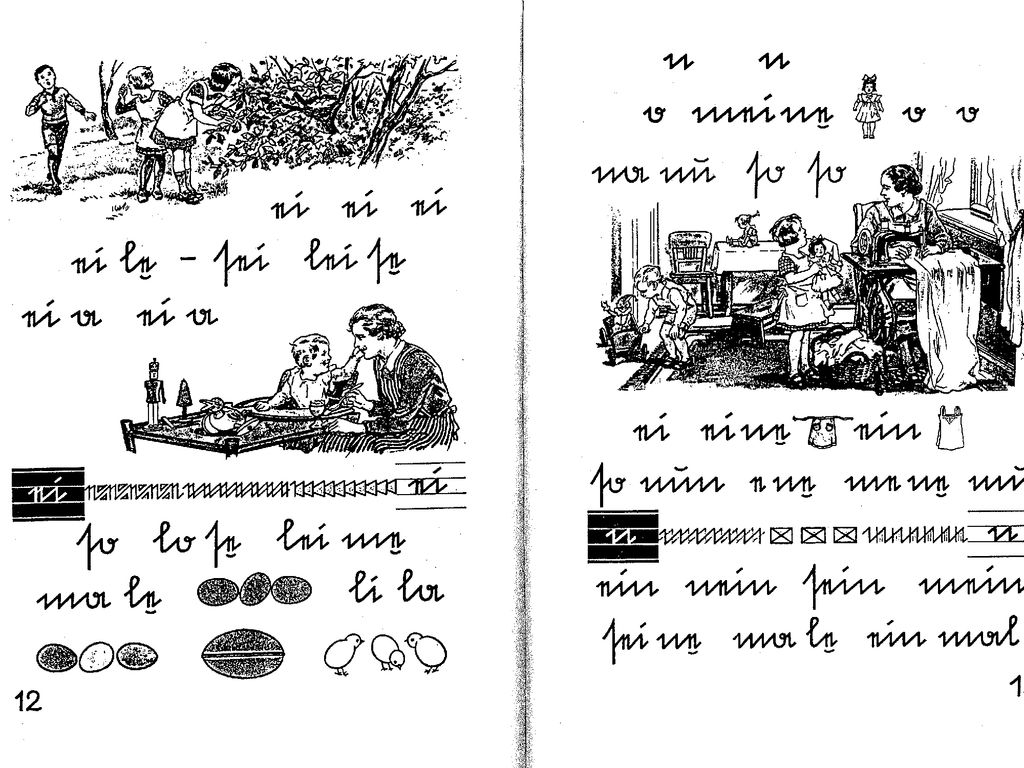 ei ei ei
ei le – sei lei se
ei a ei a
ei ei
so lo se lei me
ma le li la
12
n n
o mei ne o o
na nu so so
ei ei ne ein
so nun e ne me ne mu
n n
ein nein sein mein
sei ne ma le ein mal